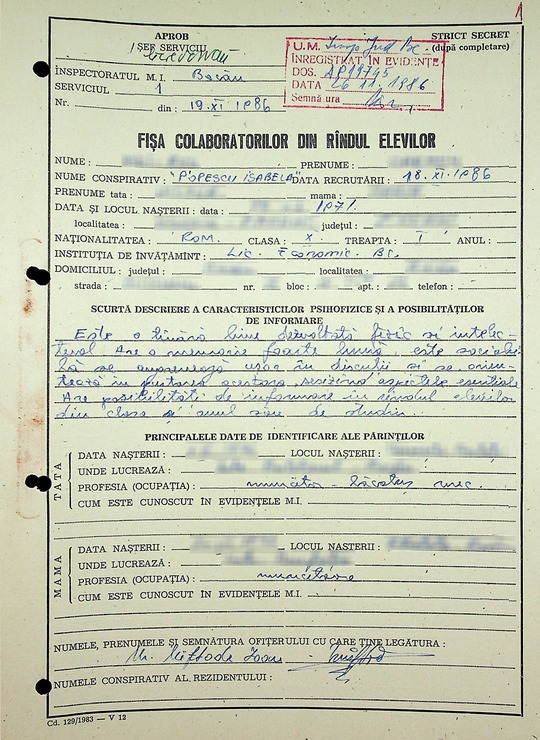 1
APROB
ŞEF SERVICIU
STRICT SECRET
(după completare)
U.M. Insp Jud Bc.
ÎNREGISTRAT ÎN EVIDENŢE
DOS.
DATA 26 11. 1986
Semnătura
INSPECTORATUL M.I. Bacău
SERVICIUL 1
Nr. din : 19.XI 1986
FIŞA COLABORATORILOR DIN RÎNDUL ELEVILOR
NUME : PRENUME :
NUME CONSPIRATIV : "POPESCU ISABELA" DATA RECRUTĂRII : 18.XI.1986
PRENUME tata : mama :
DATA ŞI LOCUL NAŞTERII : data : 1971.
localitatea : judeţul :
NAŢIONALITATEA : ROM. CLASA : X TREAPTA : I ANUL :
INSTITUŢIA DE ÎNVĂŢĂMÎNT : Lic. Economic Bc.
DOMICILIUL : judeţul : localitatea :
strada : nr. bloc : apt. telefon :
SCURTĂ DESCRIERE A CARACTERISTICILOR PSIHOFIZICE ŞI A POSIBILITĂŢILOR
DE INFORMARE
Este o tînără bine dezvoltată fizic si intelec-
tual. Are o memorie foarte bună, este sociabi-
lă se antrenează usor în discutii si se orien-
tează în purtarea acestora, sesizînd aspectele esentiale.
Are posibilităti de informare în rîndul elevilor
din clasa si anul său de studiu.
PRINCIPALELE DATE DE IDENTIFICARE ALE PĂRINŢILOR
TATA
DATA NAŞTERII : LOCUL NAŞTERII :
UNDE LUCREAZĂ :
PROFESIA (OCUPAŢIA) : muncitor - lăcătuş mec.
CUM ESTE CUNOSCUT ÎN EVIDENŢELE M.I.
MAMA
DATA NAŞTERII : LOCUL NASTERII :
UNDE LUCREAZĂ :
PROFESIA (OCUPAŢIA) : muncitoare
CUM ESTE CUNOSCUT ÎN EVIDENŢELE M.I.
NUMELE, PRENUMELE ŞI SEMNĂTURA OFIŢERULUI CU CARE ŢINE LEGĂTURA :
Miftode Ioan
NUMELE CONSPIRATIV AL REZIDENTULUI :
Cd. 129/1983 — V 12